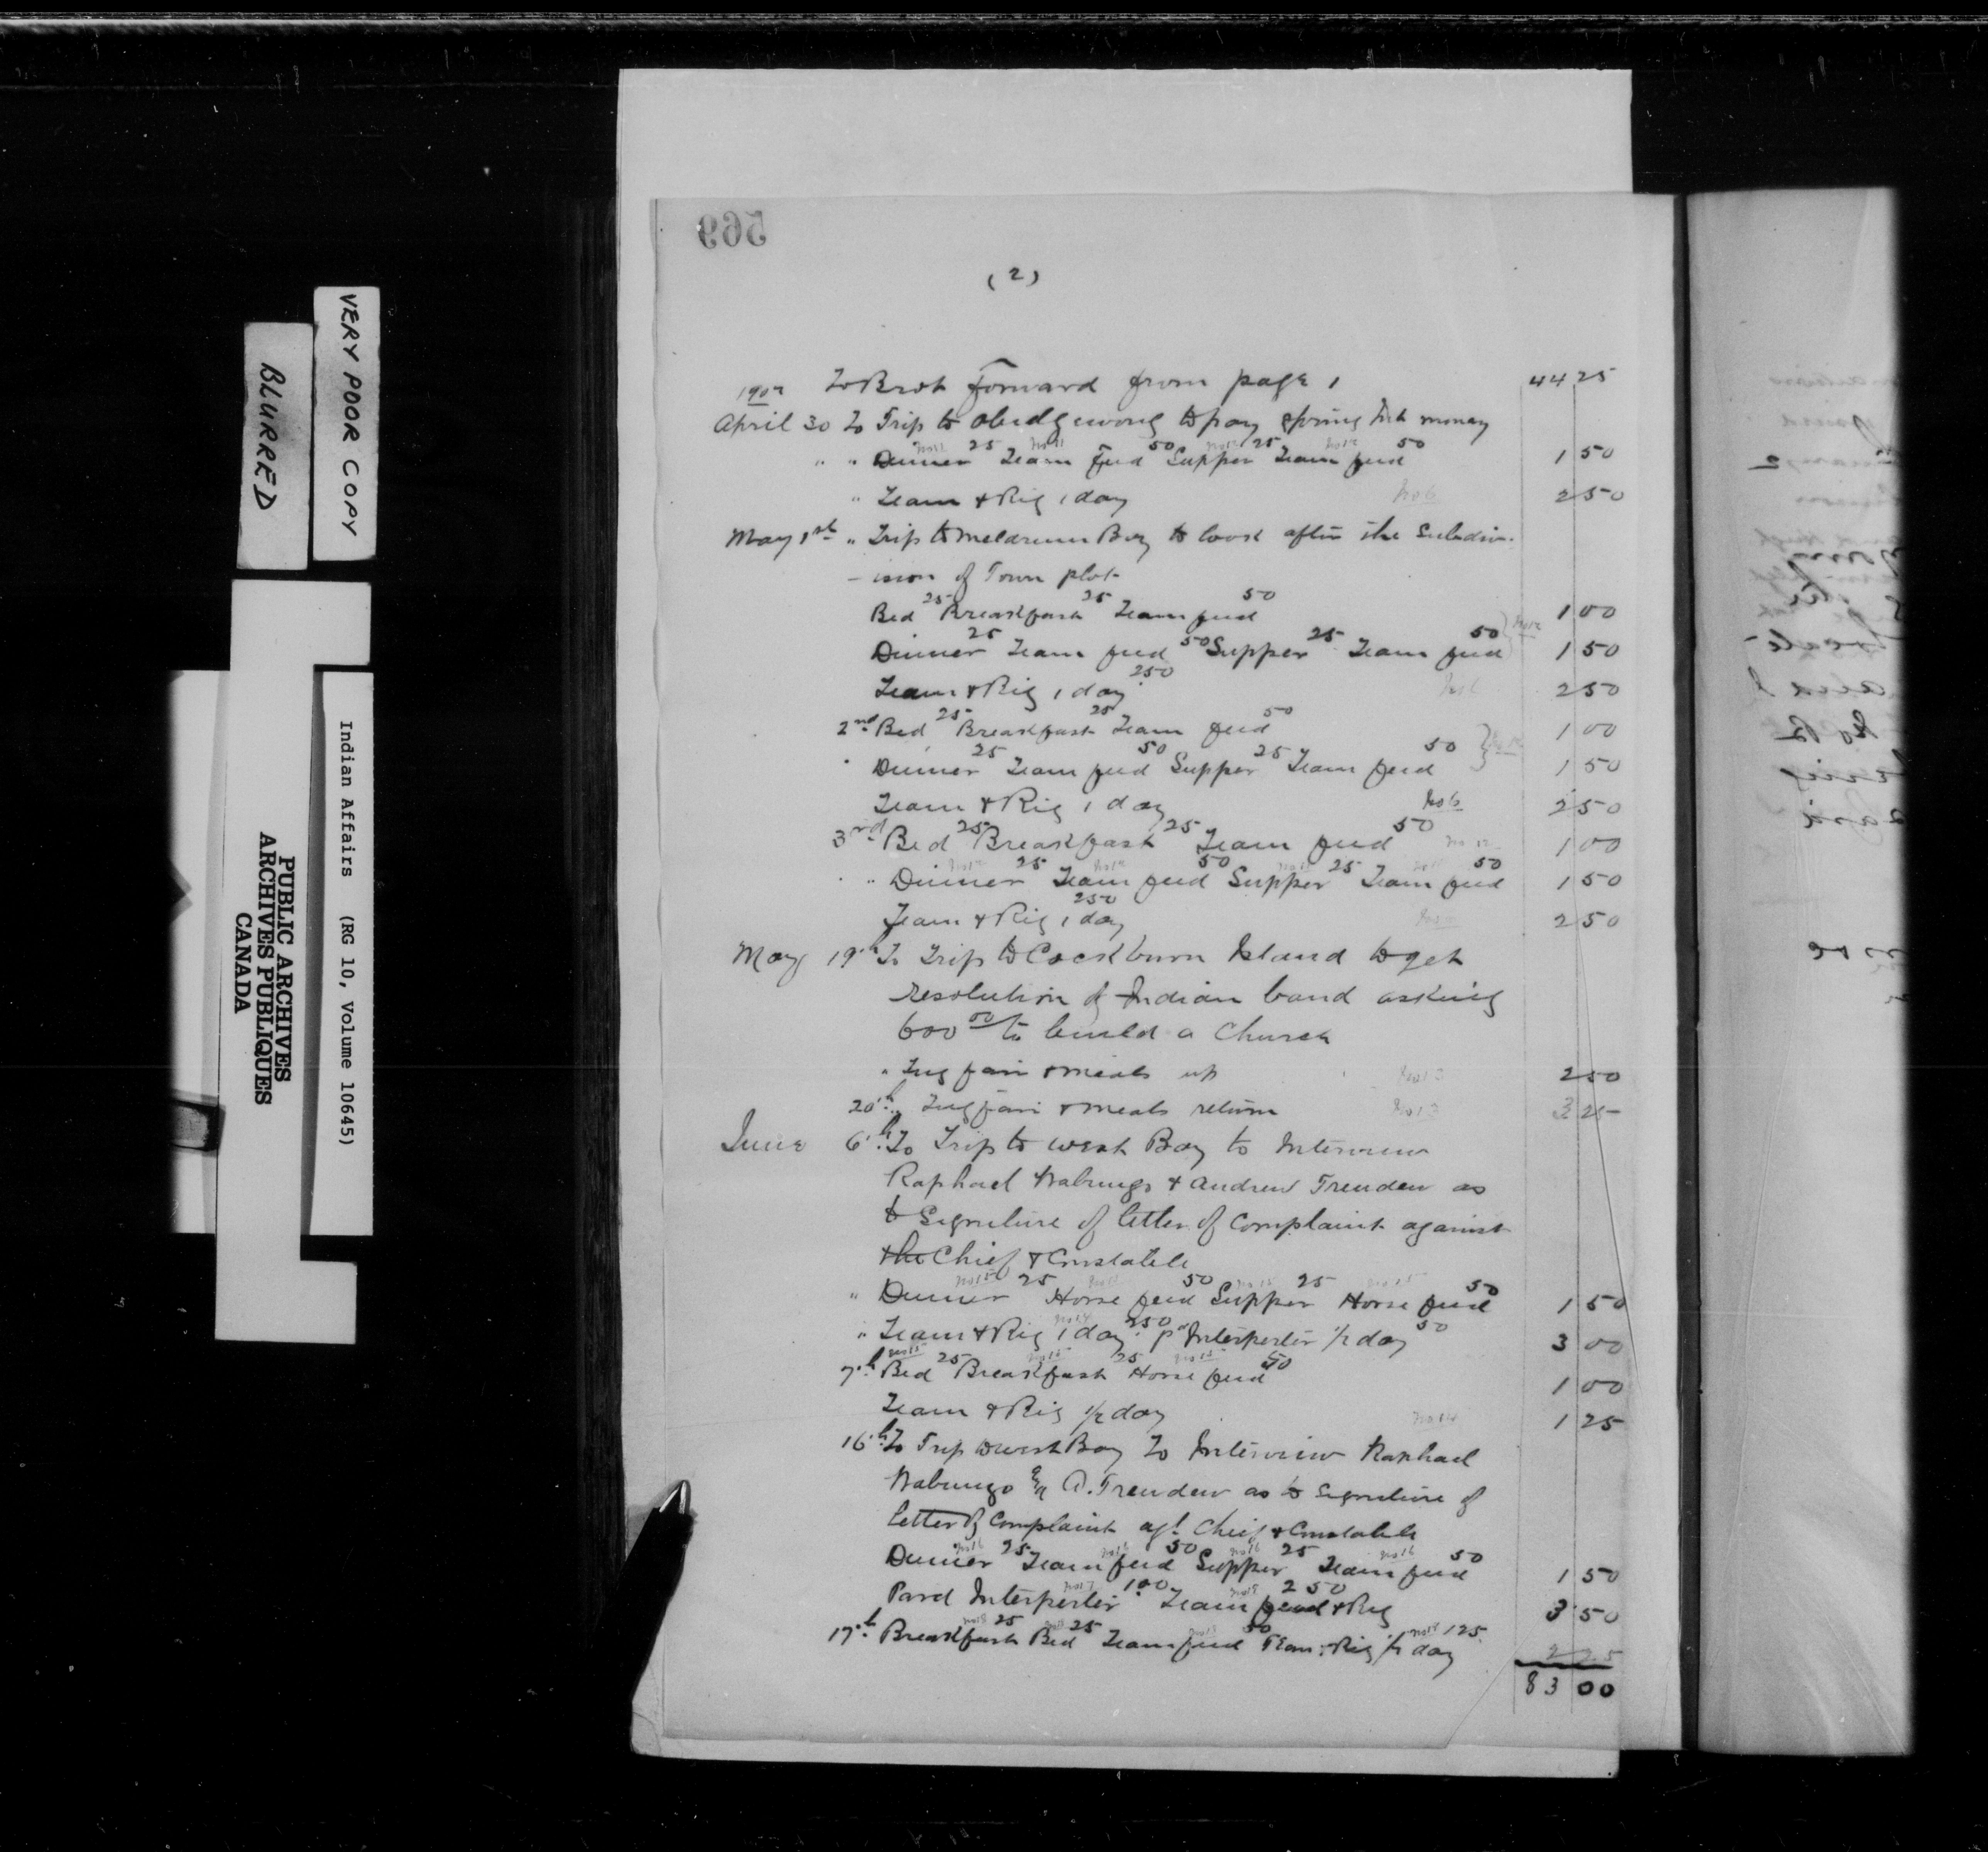 569
(2)
1902 To Brot Forward from page 1 44 25
April 30 To Trip to Obidgewong to pay spring Int money
" " Dinner 25 Team feed 50 Supper 25 Team feed 50 1 50
" Team & Rig 1 day No 6 2 50
May 1st " Trip to Meldrum Bay to look after the Subdiv-
-ision of Town plot
Bed 25 Breakfast 25 Team feed 50 1 00
Dinner 25 Team feed 50 Supper 25 Team feed 50 1 50
Team & Rig 1 day 250 2 50
2nd Bed 25 Breakfast 25 Team feed 50 1 00
" Dinner 25 Team feed 50 Supper 25 Team feed 50 1 50
Team & Rig 1 day No 6 2 50
3rd Bed 25 Breakfast 25 Team feed 50 No 12 1 00
" " Dinner 25 Team feed 50 Supper 25 Team feed 50 1 50
Team & Rig 1 day 250 2 50
May 19th To Trip to Cockburn Island to get
resolution of Indian band asking
600 00 to build a Church
" Tug fare & meals up No 13 2 50
20th " Tug fare & meals return No 13 3 25
June 6th To Trip to West Bay to Interview
Raphael & Andrew Trenden as
to Signature of letter of Complaint against
the Chief & Constable
" Dinner 25 Horse feed 50 Supper 25 Horse feed 50 1 50
" Team & Rig 1 day 250 pd Interperter 1/2 day 50 3 00
7th Bed 25 Breakfast 25 Horse feed 50 1 00
Team & Rig 1/2 day No 14 1 25
16th To Trip to West Bay To Interview Raphael
A. Trenden as to Signature of
letter of Complaint agt Chief & Constable
Dinner 25 Team feed 50 Supper 25 Team feed 50 1 50
Pard Interperter 100 Team feed & Rig 250 3 50
17th Breakfast 25 Bed 25 Team feed 50 Team & Rig 1/2 day 125 2 25
83 00
VERY POOR COPY
BLURRED
Indian Affairs (RG 10, Volume 10645)
PUBLIC ARCHIVES
ARCHIVES PUBLIQUES
CANADA